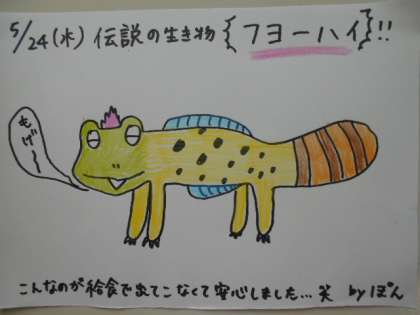 5/24(水) 伝説の生き物{フヨーハイ}!!
もげ〜〜
こんなのが給食で出てこなくて安心しました…笑 byぽん